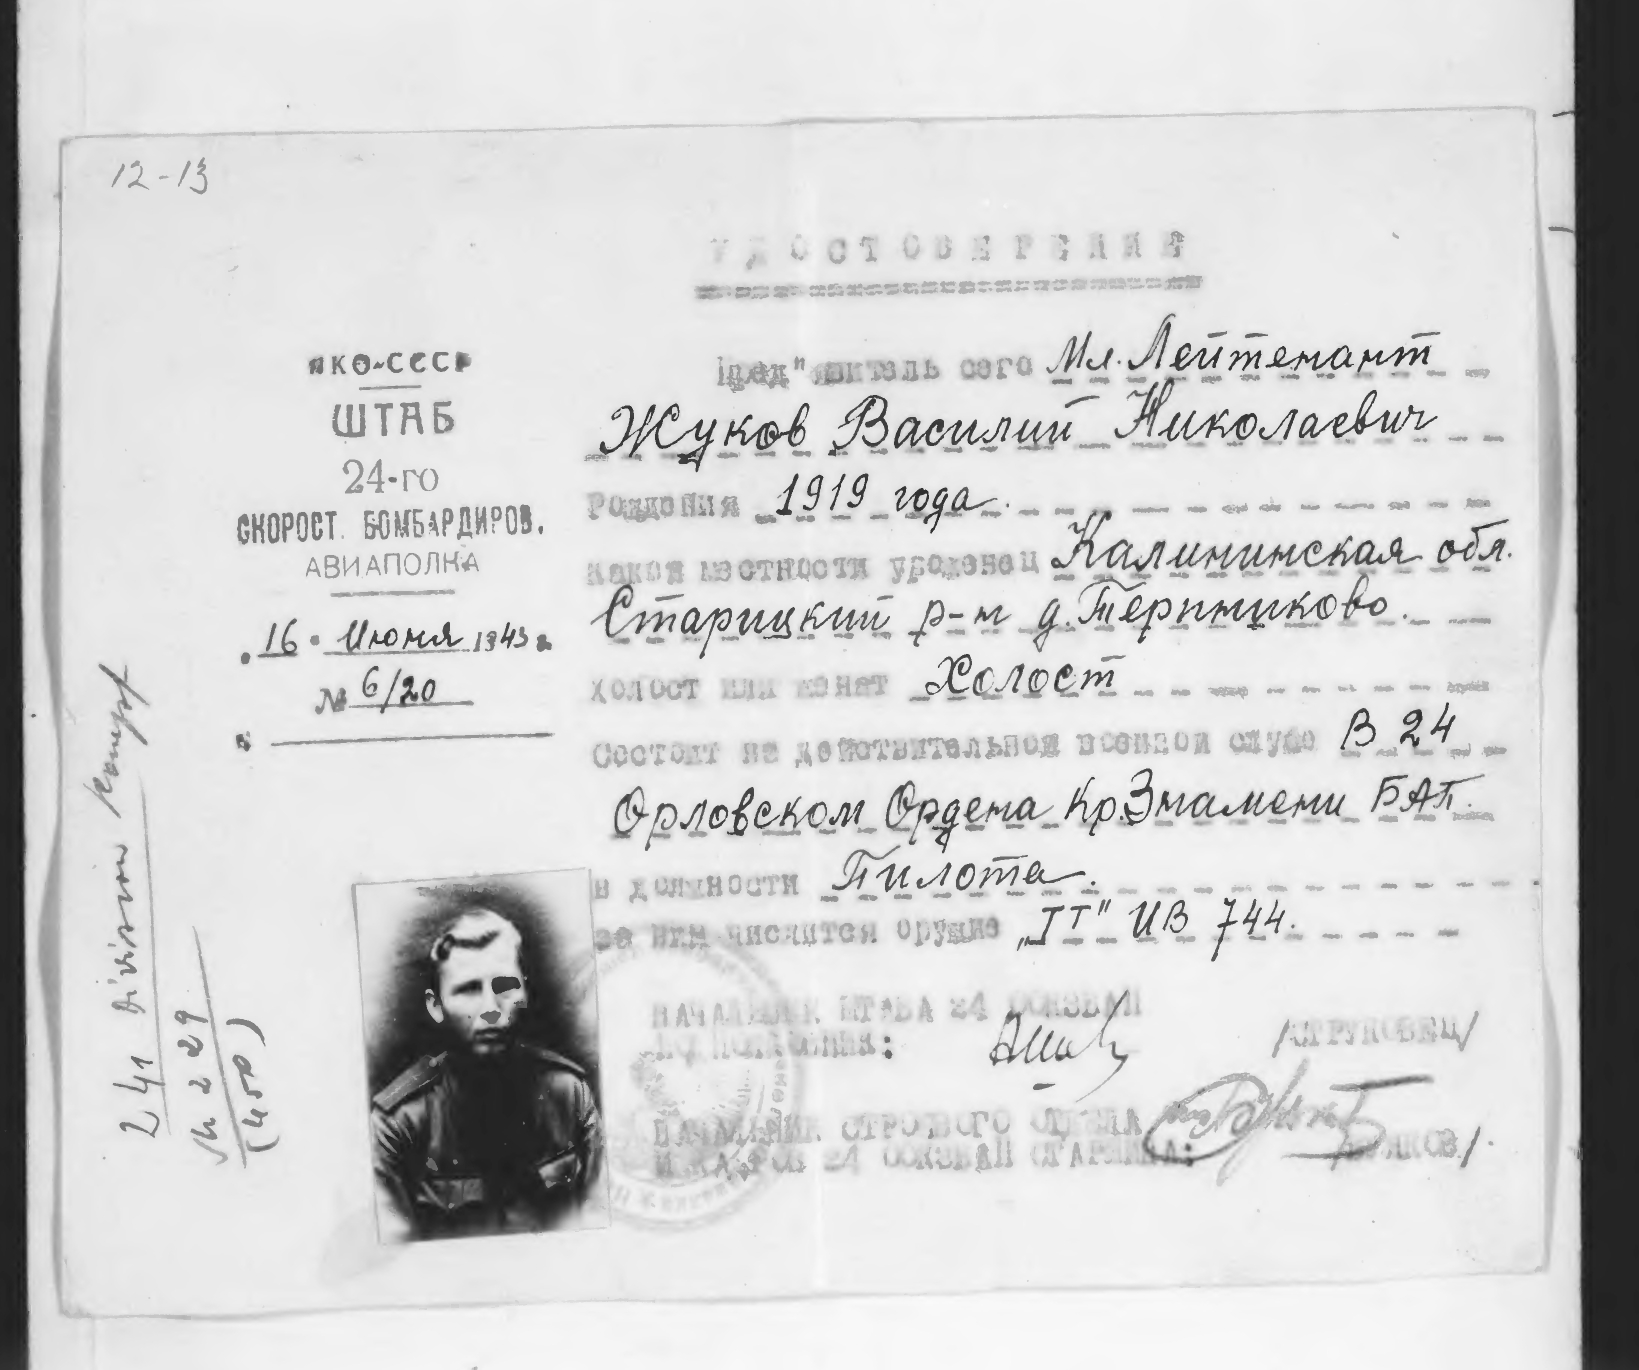 12-13
УДОСТОВЕРЕНИЕ
НКО-СССР
ШТАБ
24-го
СКОРОСТ. БОМБАРДИРОВ.
АВИАПОЛКА
"16" Июня 1943 г.
№ 6/20
Пред"явитель сего Мл. Лейтенант
Жуков Василий Николаевич
Рождения 1919 года.
какой местности уроженец Калининская обл.
Старицкий р-н д.
холост или женат Холост
Состоит на действительной военной служ В 24
Орловском Ордена Кр. Знамени БАП.
в должности Пилота.
за ним числится оружие „ТТ" ИВ 744.
НАЧАЛЬНИК ШТАБА 24 ОСКЗБАП
ПОДПОЛКОВНИК: /СТРУНОВЕЦ/
НАЧАЛЬНИК СТРОЕВОГО ОТДЕЛА
И КАДРОВ 24 ОСКЗБАП СТАРШИНА:
241 Division
№ 229
(450)